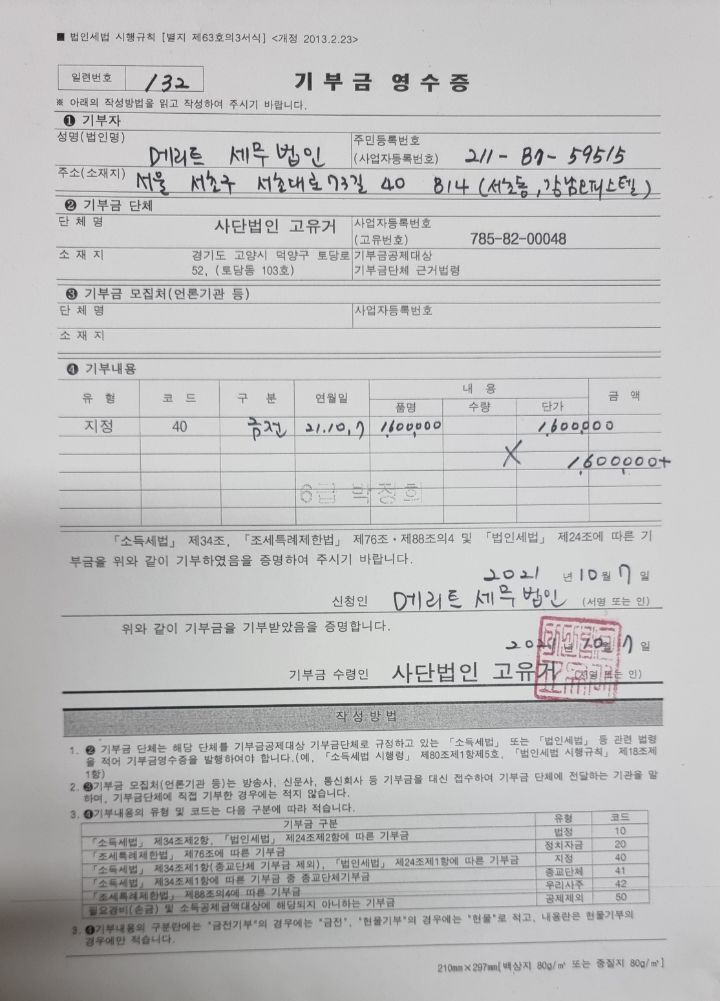 ■ 법인세법 시행규칙 [별지 제63호의3서식] <개정 2013.2.23>
일련번호 132
기부금 영수증
※ 아래의 작성방법을 읽고 작성하여 주시기 바랍니다.
❶ 기부자
성명(법인명) 메리트 세무법인 주민등록번호 (사업자등록번호) 211-87-59515
주소(소재지) 서울 서초구 서초대로73길 40 814 (서초동, 강남오피스텔)
❷ 기부금 단체
단 체 명 사단법인 고유거 사업자등록번호 (고유번호) 785-82-00048
소 재 지 경기도 고양시 덕양구 토당로 52, (토당동 103호) 기부금공제대상 기부금단체 근거법령
❸ 기부금 모집처(언론기관 등)
단 체 명 사업자등록번호
소 재 지
❹ 기부내용
유 형 코 드 구 분 연월일 내 용 금 액
품명 수량 단가
지정 40 금전 21.10.7 1,600,000 1,600,000
X 1,600,000+
「소득세법」 제34조, 「조세특례제한법」 제76조·제88조의4 및 「법인세법」 제24조에 따른 기
부금을 위와 같이 기부하였음을 증명하여 주시기 바랍니다.
2021 년 10 월 7 일
신청인 메리트 세무법인 (서명 또는 인)
위와 같이 기부금을 기부받았음을 증명합니다.
2021 년 10 월 7 일
기부금 수령인 사단법인 고유거 (서명 또는 인)
작성방법
1. ❷ 기부금 단체는 해당 단체를 기부금공제대상 기부금단체로 규정하고 있는 「소득세법」 또는 「법인세법」 등 관련 법령
을 적어 기부금영수증을 발행하여야 합니다.(예, 「소득세법 시행령」 제80조제1항제5호, 「법인세법 시행규칙」 제18조제
1항)
2. ❸기부금 모집처(언론기관 등)는 방송사, 신문사, 통신회사 등 기부금을 대신 접수하여 기부금 단체에 전달하는 기관을 말
하며, 기부금단체에 직접 기부한 경우에는 적지 않습니다.
3. ❹기부내용의 유형 및 코드는 다음 구분에 따라 적습니다.
기부금 구분 유형 코드
「소득세법」 제34조제2항, 「법인세법」 제24조제2항에 따른 기부금 법정 10
「조세특례제한법」 제76조에 따른 기부금 정치자금 20
「소득세법」 제34조제1항(종교단체 기부금 제외), 「법인세법」 제24조제1항에 따른 기부금 지정 40
「소득세법」 제34조제1항에 따른 기부금 중 종교단체기부금 종교단체 41
「조세특례제한법」 제88조의4에 따른 기부금 우리사주 42
필요경비(손금) 및 소득공제금액대상에 해당되지 아니하는 기부금 공제제외 50
3. ❹기부내용의 구분란에는 "금전기부"의 경우에는 "금전", "현물기부"의 경우에는 "현물"로 적고, 내용란은 현물기부의
경우에만 적습니다.
210mm×297mm[백상지 80g/㎡ 또는 중질지 80g/㎡]